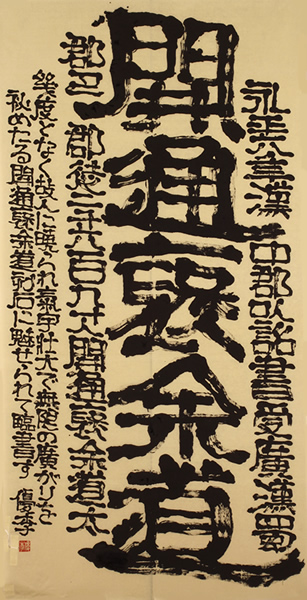 永平六年漢中郡以詔書受廣漢蜀
開通褒余道
郡巴郡徒二千六百九十人開通褒余道太
幾度となく故人に られ氣宇壮大で無限の廣がりを
秘めたる開通褒余道刻石に魅せられて臨書す